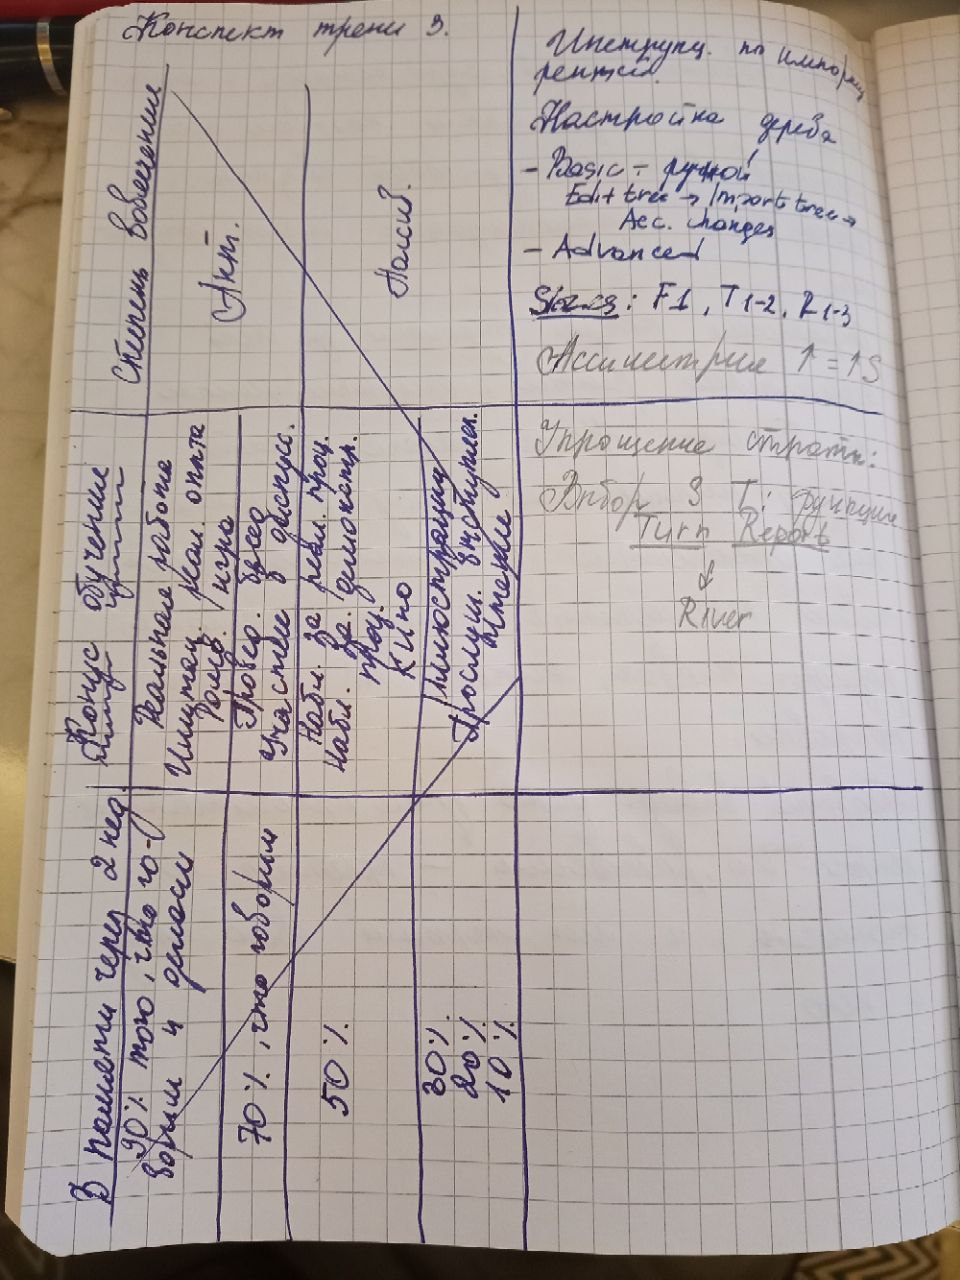 Конспект трени 3.
Степень вовлечения
Акт.
Пассив.
Конус обучение
Реальная работа
Имитац. реал. опыта
игра
Провед.
Участие в дискусс.
Набл. за реал. проц.
Набл. за демонстр.
проц.
Кино
Иллюстрации
Прослуш. выступлен.
Чтение
В памяти через 2 нед.
90% того, что го-
ворим и делаем
70%, что говорим
50%
30%
20%
10%
Инструкц. по импорту
ренжей.
Настройка дерева
- Basic - ручной
Edit tree → Import tree →
Acc. changes
- Advanced
F1, T1-2, R1-3
Ассиметрия ↑ = ↑ S
Упрощение страты:
Выбор 3 T: функции
Turn Report
↓
River